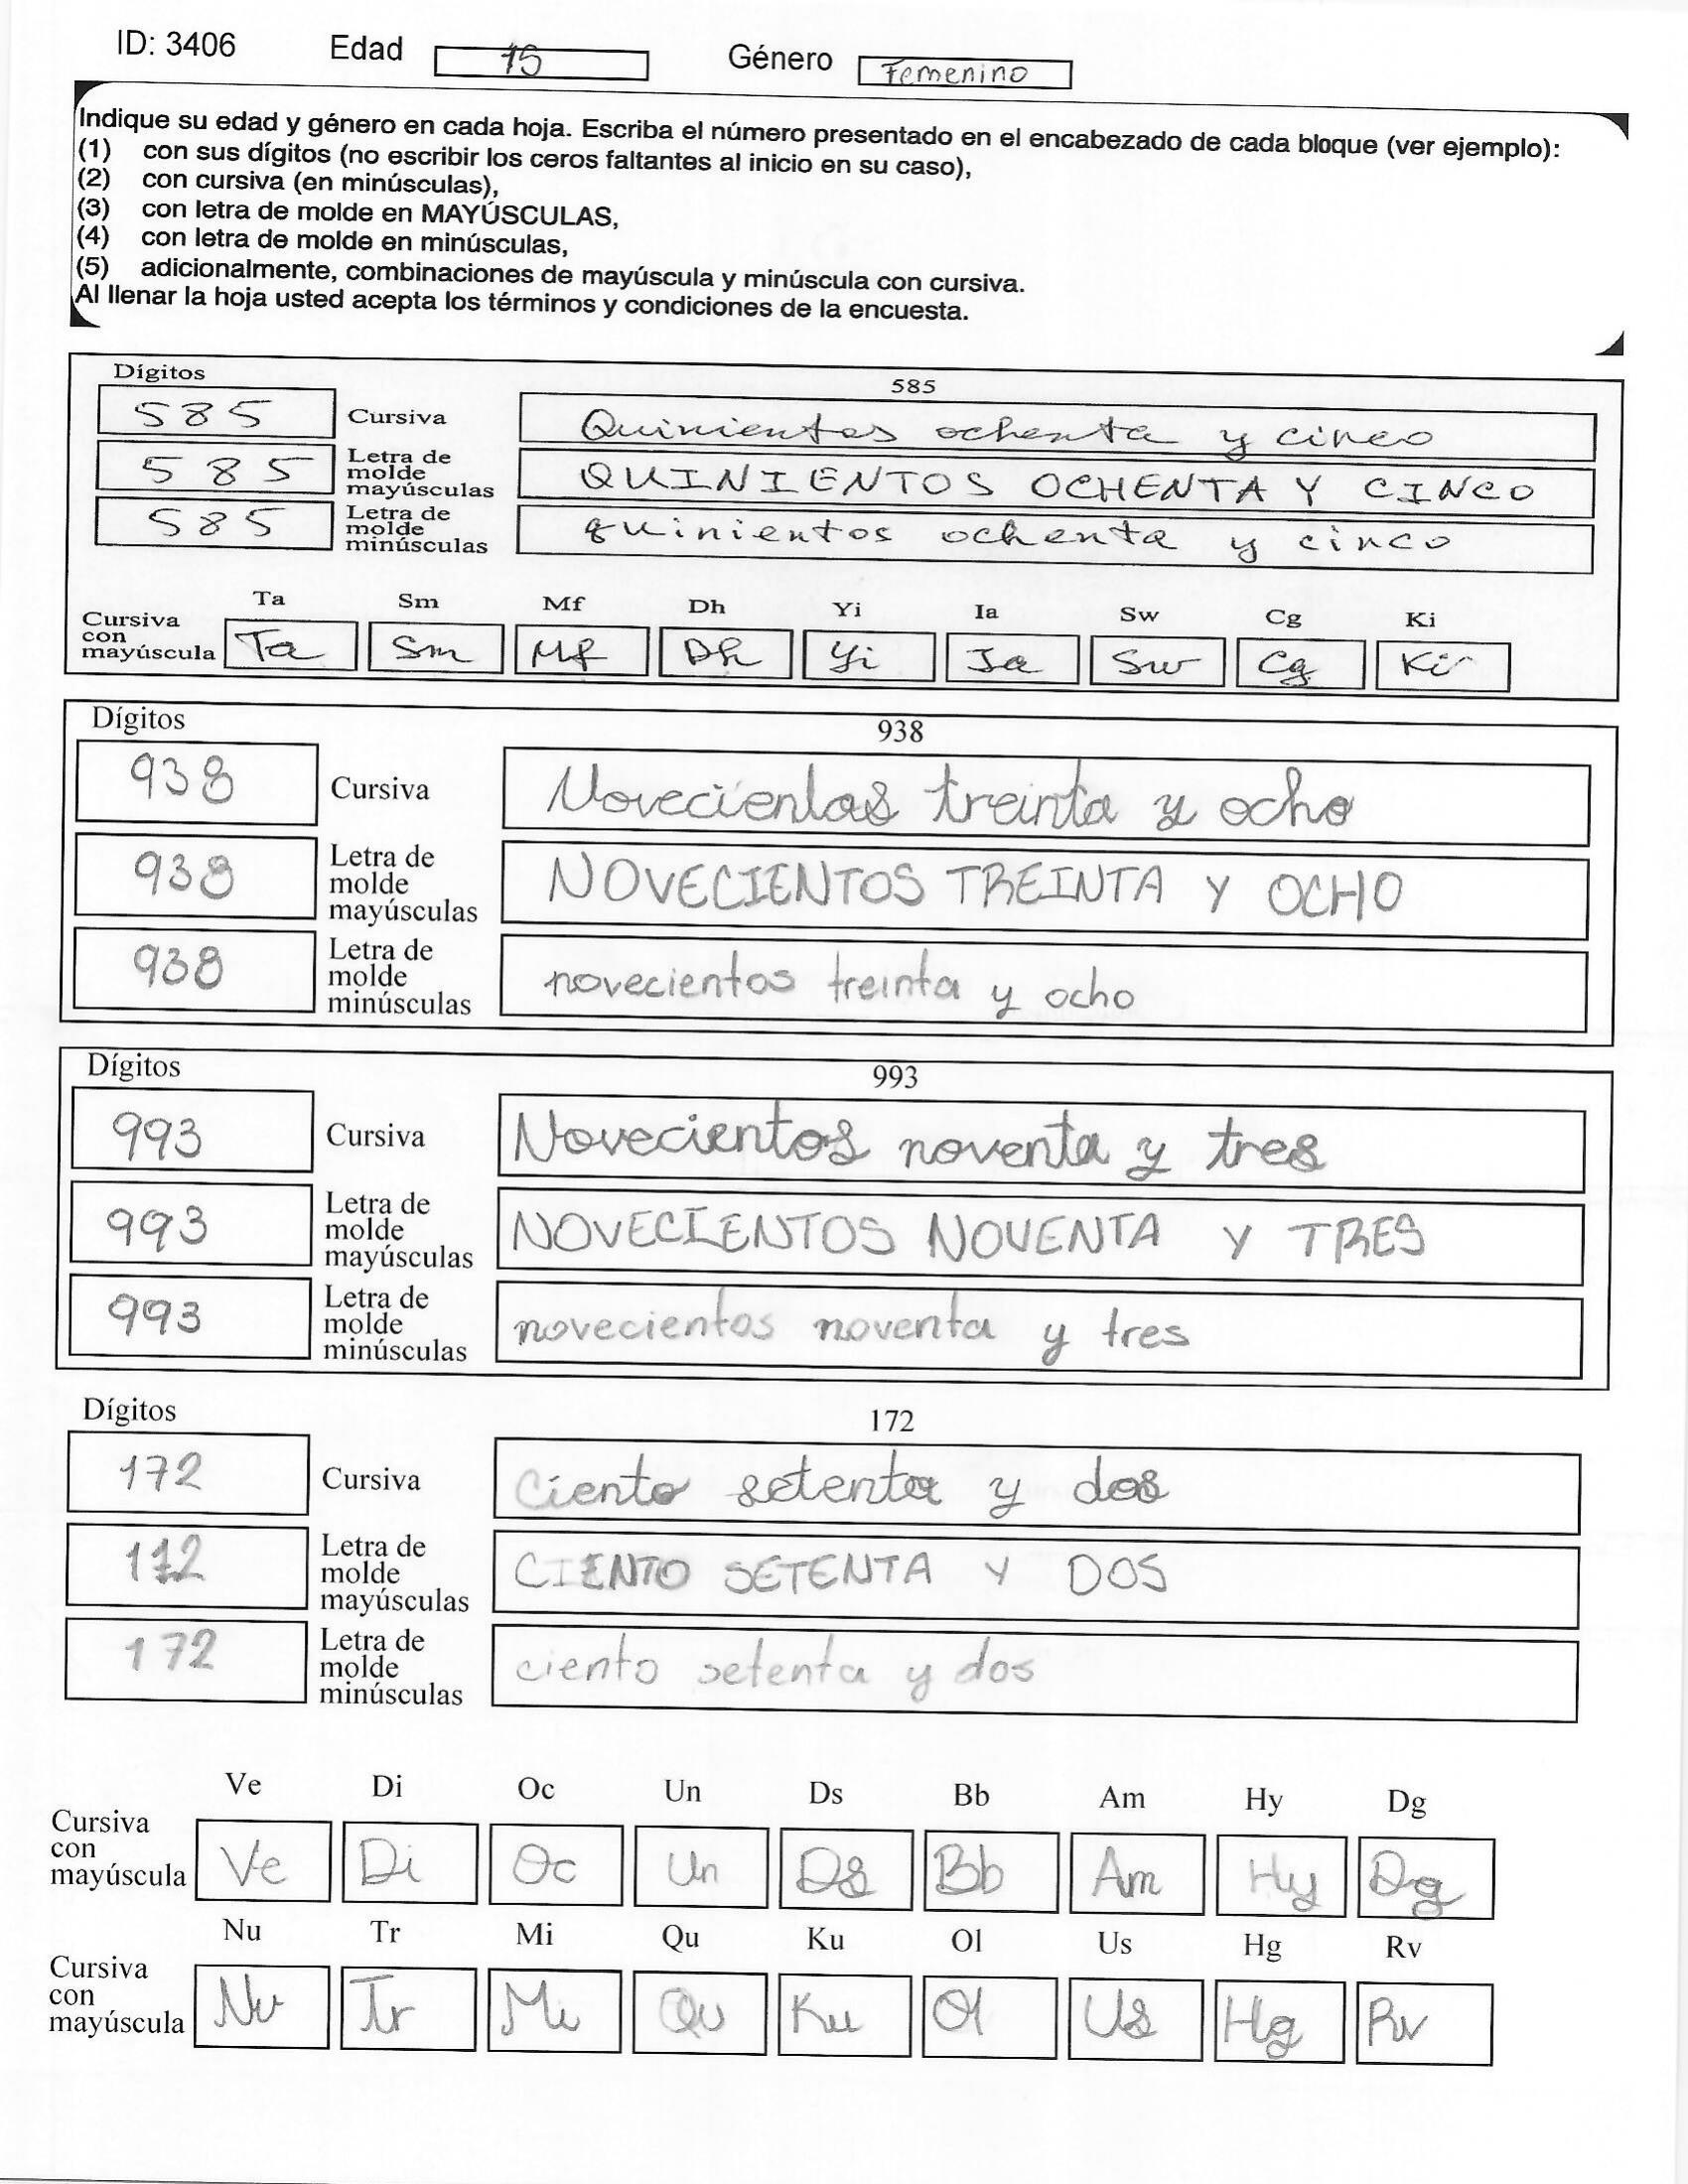 ID: 3406 Edad 15 Género Femenino
Indique su edad y género en cada hoja. Escriba el número presentado en el encabezado de cada bloque (ver ejemplo):
(1) con sus dígitos (no escribir los ceros faltantes al inicio en su caso),
(2) con cursiva (en minúsculas),
(3) con letra de molde en MAYÚSCULAS,
(4) con letra de molde en minúsculas,
(5) adicionalmente, combinaciones de mayúscula y minúscula con cursiva.
Al llenar la hoja usted acepta los términos y condiciones de la encuesta.
Dígitos 585
585 Cursiva Quinientos ochenta y cinco
585 Letra de molde mayúsculas QUINIENTOS OCHENTA Y CINCO
585 Letra de molde minúsculas quinientos ochenta y cinco
Ta Sm Mf Dh Yi Ia Sw Cg Ki
Cursiva con mayúscula Ta Sm Mf Dh Yi Ia Sw Cg Ki
Dígitos 938
938 Cursiva Novecientos treinta y ocho
938 Letra de molde mayúsculas NOVECIENTOS TREINTA Y OCHO
938 Letra de molde minúsculas novecientos treinta y ocho
Dígitos 993
993 Cursiva Novecientos noventa y tres
993 Letra de molde mayúsculas NOVECIENTOS NOVENTA Y TRES
993 Letra de molde minúsculas novecientos noventa y tres
Dígitos 172
172 Cursiva Ciento setenta y dos
172 Letra de molde mayúsculas CIENTO SETENTA Y DOS
172 Letra de molde minúsculas ciento setenta y dos
Ve Di Oc Un Ds Bb Am Hy Dg
Cursiva con mayúscula Ve Di Oc Un Ds Bb Am Hy Dg
Nu Tr Mi Qu Ku Ol Us Hg Rv
Cursiva con mayúscula Nu Tr Mi Qu Ku Ol Us Hg Rv